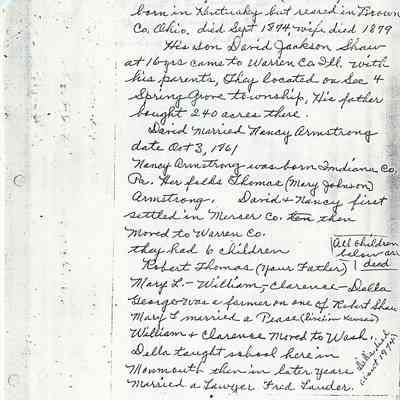 born in Kentucky but reared in Brown
Co. Ohio. died Sept 1874, wife died 1879
His son David Jackson Shaw
at 16 yrs came to Warren Co Ill. with
his parents, they located on Sec 4
Spring Grove township, His father
bought 240 acres there.
David Married Nancy Armstrong
date Oct 3, 1961
Nancy Armstrong was born Indiana Co,
Pa. Her folks Thomas (Mary Johnson)
Armstrong. David & Nancy first
settled in Merser Co. then
Moved to Warren Co.
they had 6 children
All children
below are
dead
Robert Thomas (your Father)
Mary L. - William, - Clarence - Della
George was a farmer on one of Robert Shaw
Mary L married a Pease (lived in Kansas)
William & Clarence Moved to Wash.
Della taught school here in
Monmouth then in later years
Married a Lawyer Fred Lauder.
Della died
(about 1974)